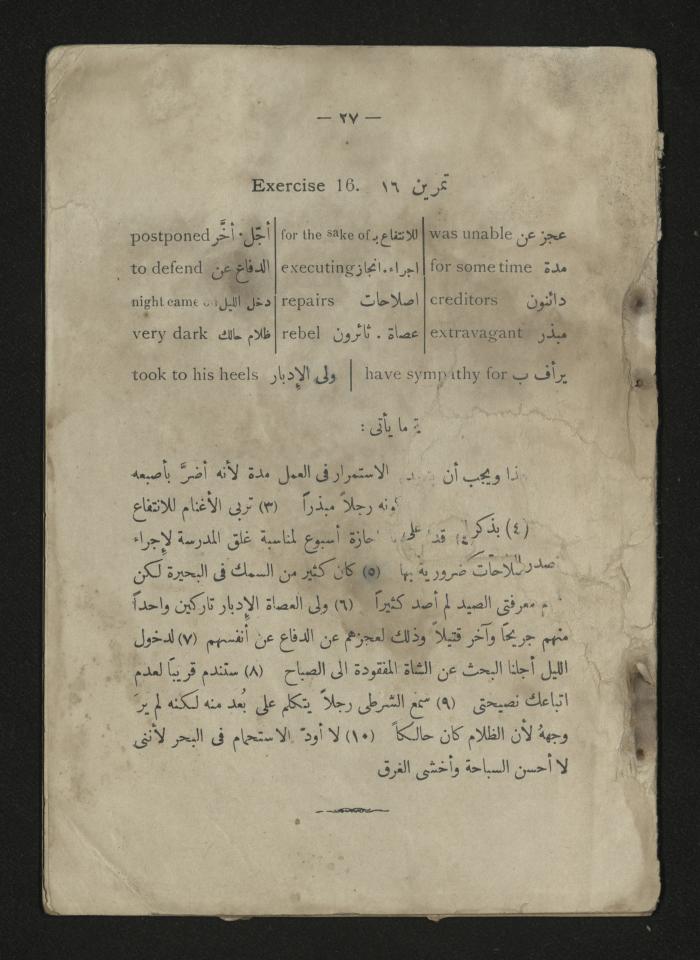 — ٢٧ —
Exercise 16. تمرين ١٦
postponed أجّل. أخَّر | for the sake of للانتفاع بـ | was unable عجز عن
to defend الدفاع عن | executing اجراء. انجاز | for some time مدة
night came دخل الليل | repairs اصلاحات | creditors دائنون
very dark ظلام حالك | rebel عصاة . ثائرون | extravagant مبذر
took to his heels ولى الإدبار | have sympathy for يرأف ب
ما يأتى :
ويجب أن الاستمرار فى العمل مدة لأنه أضرَّ بأصبعه
رجلاً مبذراً (٣) تربى الأغنام للانتفاع
(٤) أسبوع لمناسبة غلق المدرسة لإجراء
ضرورية بها (٥) كان كثير من السمك فى البحيرة لكن
معرفتى الصيد لم أصد كثيراً (٦) ولى العصاة الإدبار تاركين واحداً
منهم جريحاً وآخر قتيلاً وذلك لعجزهم عن الدفاع عن أنفسهم (٧) لدخول
الليل أجلنا البحث عن الشاة المفقودة الى الصباح (٨) ستندم قريباً لعدم
اتباعك نصيحتى (٩) سمع الشرطى رجلاً يتكلم على بُعد منه لكنه لم يرَ
وجههُ لأن الظلام كان حالكاً (١٠) لا أودّ الاستحمام فى البحر لأننى
لا أحسن السباحة وأخشى الغرق